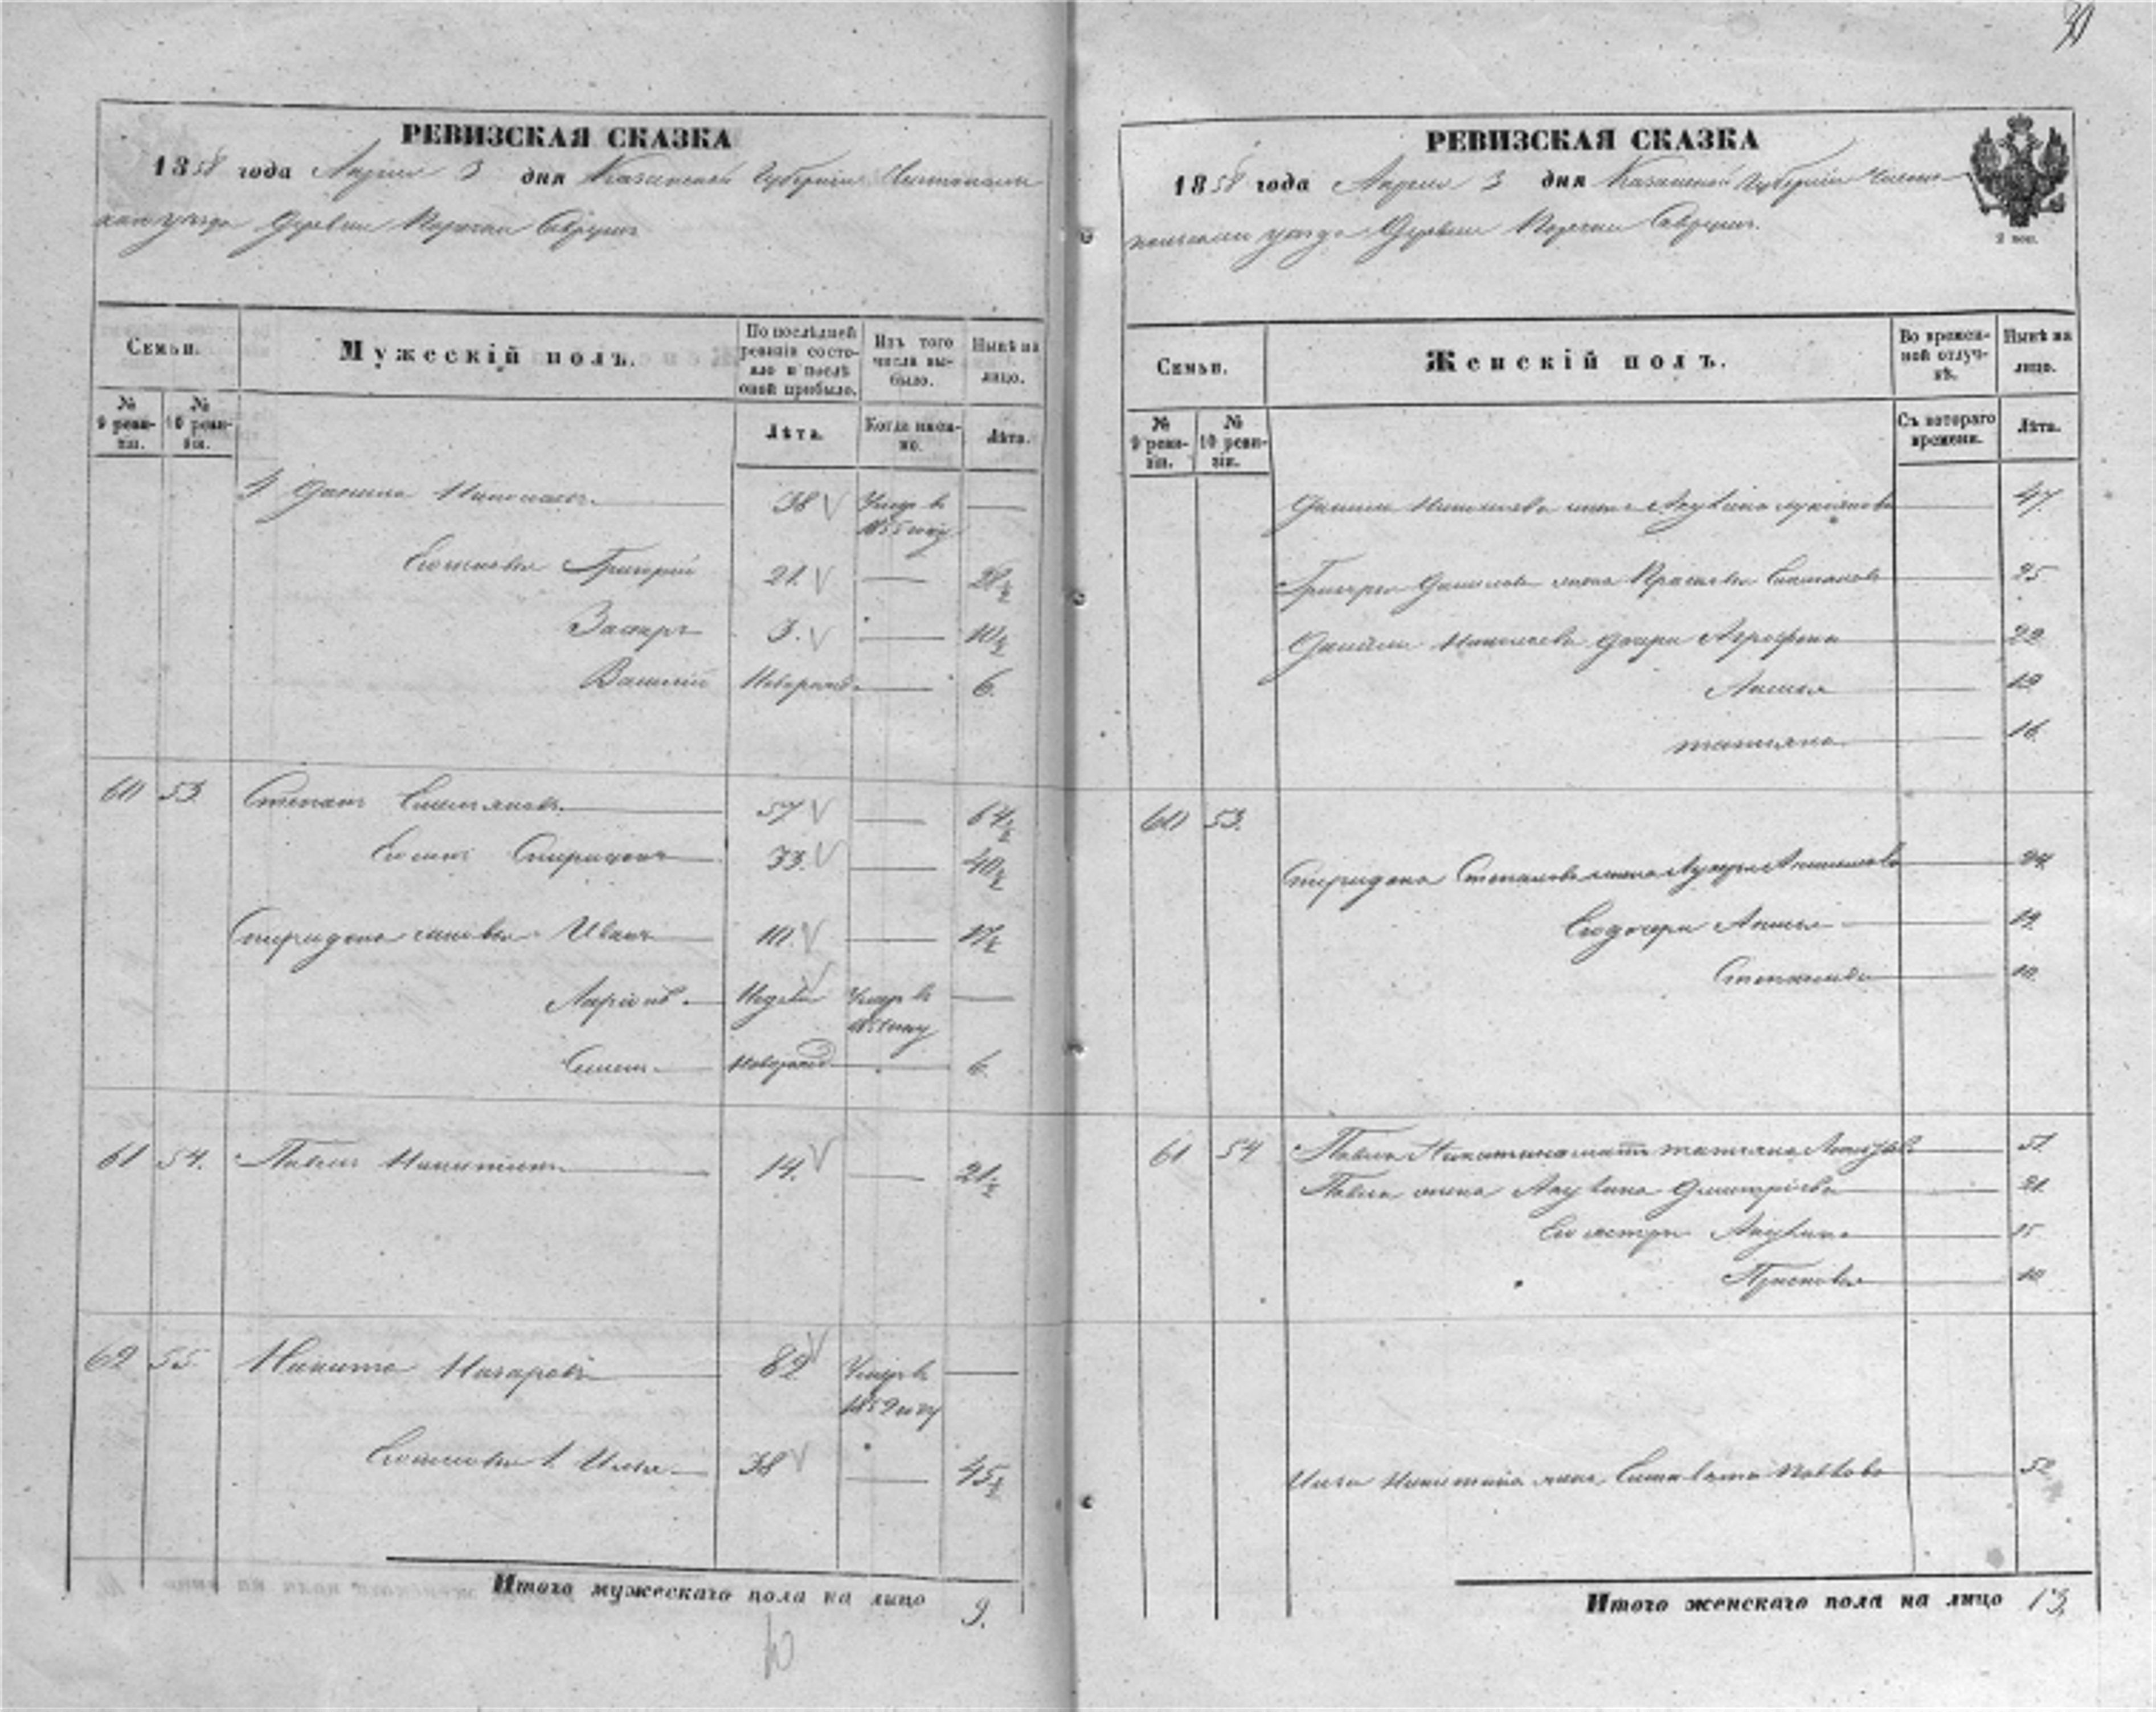 30
РЕВИЗСКАЯ СКАЗКА
1858 года Апреля 3 дня Казанской Губернии Чистополь
скаго уезда Деревни
Семьи.
Мужескій полъ.
По послѣдней ревизіи состояло и послѣ оной прибыло.
Изъ того числа выбыло.
Нынѣ на лицо.
№ 9 ревизіи.
№ 10 ревизіи.
Лѣта.
Когда именно.
Лѣта.
Данила Николаевъ 38 Умер в 1855 году
Его сыновья Григорій 21. 28½
Захаръ 3. 10½
Василій Новорожд. 6.
60 53 Степанъ 57 64½
Его сынъ Спиридонъ 33. 40½
Спиридона сыновья Иванъ 10. 17½
Ларіонъ Недели Умер в
Семенъ Новорожд 6.
61 54. Павелъ Никитинъ 14. 21½
62 55. Никита Назаровъ 82 Умер в 1852 году
Его сыновья 1. Илья 38 45½
Итого мужескаго пола на лицо 9.
10
РЕВИЗСКАЯ СКАЗКА
1858 года Апреля 3 дня Казанской Губерніи Чисто
польскаго уезда Деревни
2 коп.
Семьи.
Женскій полъ.
Во временной отлучкѣ.
Нынѣ на лицо.
№ 9 ревизіи.
№ 10 ревизіи.
Съ котораго времени.
Лѣта.
Данилы Николаева жена Акулина 47.
Григорья Данилова жена Прасковья Степанова 25
Данилы Николаева дочери Агрофена 22
Анисья 19
татьяна 16.
60 53.
Спиридона Степанова жена
Его дочери Анисья 14.
Степанида 10.
61 54 Павла Никитина мать татьяна 51.
Павла жена Акулина Дмитріева 21.
Его сестры Акулина 15
Прасковья 10
Ильи Никитина жена Елизавета 52
Итого женскаго пола на лицо 13.